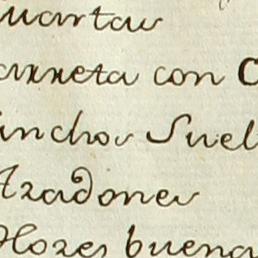 uartas
arreta con C
inchos Suel
Azadones
Hozes buena